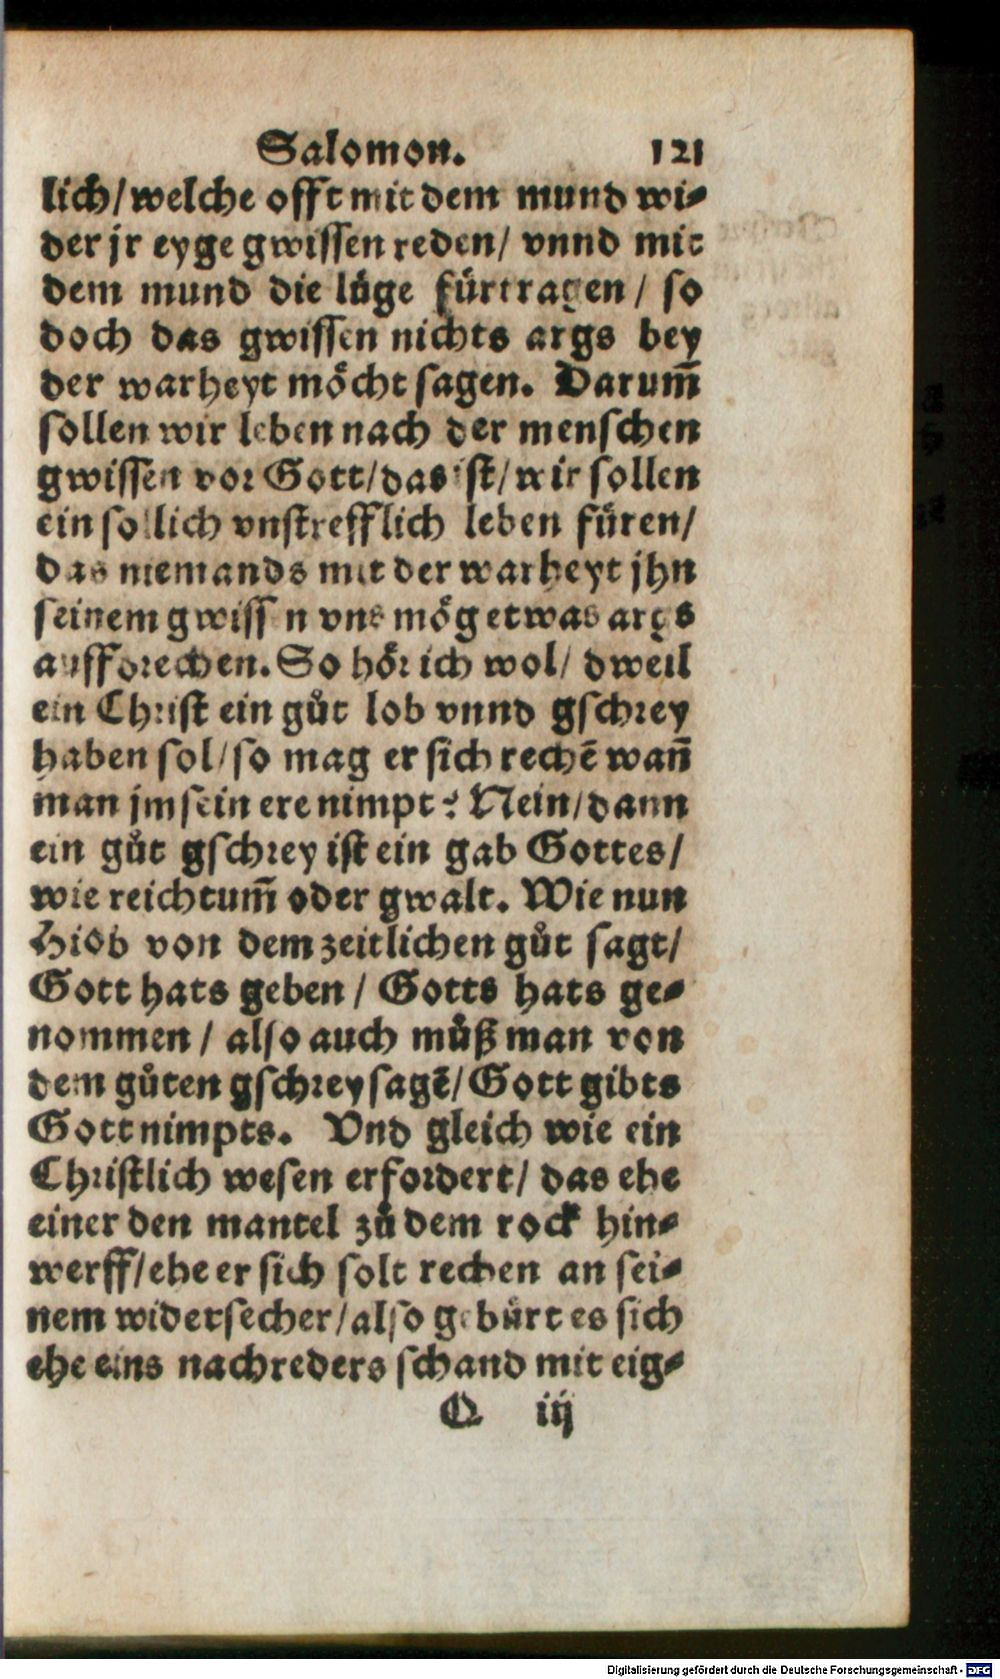 Salomon. 121
lich/ welche offt mit dem mund wi⸗
der jr eyge gwissen reden/ vnnd mit
dem mund die lüge fürtragen/ so
doch das gwissen nichts args bey
der warheyt möcht sagen. Darum̄
sollen wir leben nach der menschen
gwissen vor Gott/ das ist/ wir sollen
ein sollich vnstrefflich leben füren/
das niemands mit der warheyt jhn
seinem gwissen vns mög etwas args
auffbrechen. So hör ich wol/ dweil
ein Christ ein gůt lob vnnd gschrey
haben sol/ so mag er sich rechē wañ
man jm sein ere nimpt? Nein/ dann
ein gůt gschrey ist ein gab Gottes/
wie reichtum̄ oder gwalt. Wie nun
Hiob von dem zeitlichen gůt sagt/
Gott hats geben/ Gotts hats ge⸗
nommen/ also auch můß man von
dem gůten gschrey sagē/ Gott gibts
Gott nimpts. Vnd gleich wie ein
Christlich wesen erfordert/ das ehe
einer den mantel zů dem rock hin⸗
werff/ ehe er sich solt rechen an sei⸗
nem widersecher/ also gebürt es sich
ehe eins nachreders schand mit eig⸗
Q iij
Digitalisierung gefördert durch die Deutsche Forschungsgemeinschaft - DFG